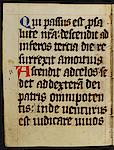 Qui passus est p salu
te nra: descendit ad
inferos tercia die re
surrexit amortuis
Ascendit adcelos: se
det addexteram dei
patris omnipoten
tis: inde venturus
est iudicare vivos